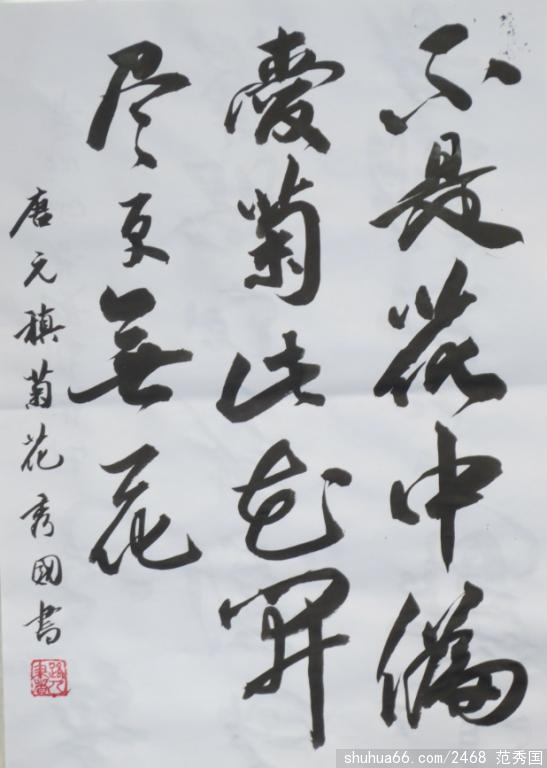 不是花中偏
愛菊此花開
尽更無花
唐元稹菊花 秀國書
shuhua66.com/2468 范秀国